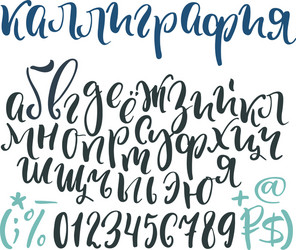 каллиграфия
абвгдеёжзийкл
мнопрстуфхцч
шщъыьэюя
*–+@
(;%0123456789₽$)